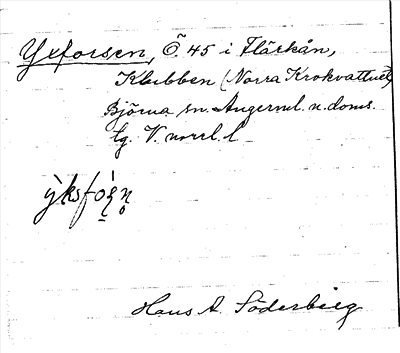 Yxforsen, Ö 45 i Flärkån,
Klubben (Norra Krokvattnet)
Björna sn. Ångerml. n. doms.
lg. V. norrl. l
ỳksfó̱ṣn̥
Hans A. Söderberg